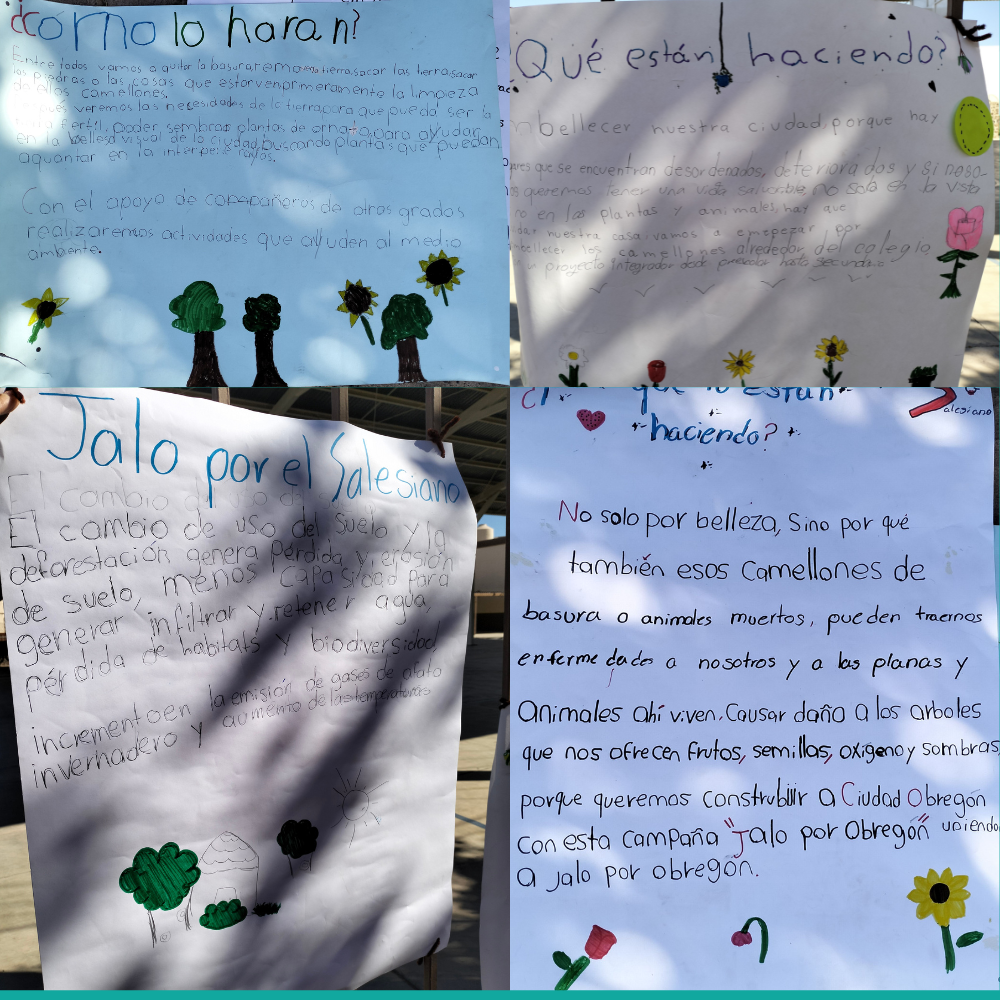 ¿Como lo haran?
Entre todos vamos a quitar la basura, tierra, sacar las tierra, sacar
las piedras o las cosas que estorven primeramente la limpieza
de ellos camellones.
veremos las necesidades de la tierra para que pueda ser la
tierra fertil, poder sembrar plantas de ornato para ayudar
en la belleza visual de la ciudad, buscando plantas que puedan
aguantar en la
Con el apoyo de compañeros de otros grados
realizaremos actividades que ayuden al medio
ambiente.
Qué están haciendo?
nbellecer nuestra ciudad, porque hay
ares que se encuentran desordenados, deteriorados y si noso-
s queremos tener una vida no solo en la vista
ro en las plantas y animales, hay que
dar nuestra casa. vamos a empezar por
los camellones alrededor del colegio
proyecto Integrador desde hasta secundaria
Jalo por el Salesiano
El cambio de uso de
El cambio de uso del suelo y la
deforestación genera pérdida y erosión
de suelo, menos capasidad para
generar infiltrar y retener agua,
pérdida de habitats y biodiversidad
incremento en la emisión de gases de efato
invernadero y aumento de las temperaturas
que lo están
haciendo?
alesiano
No solo por belleza, Sino por qué
también esos Camellones de
basura o animales muertos, pueden traernos
enfermedades a nosotros y a las planas y
Animales ahí viven. Causar daño a los arboles
que nos ofrecen frutos, semillas, oxigeno y sombras,
porque queremos construbiir a Ciudad Obregon
con esta campaña "Jalo por Obregon" uniendo
a jalo por obregon.